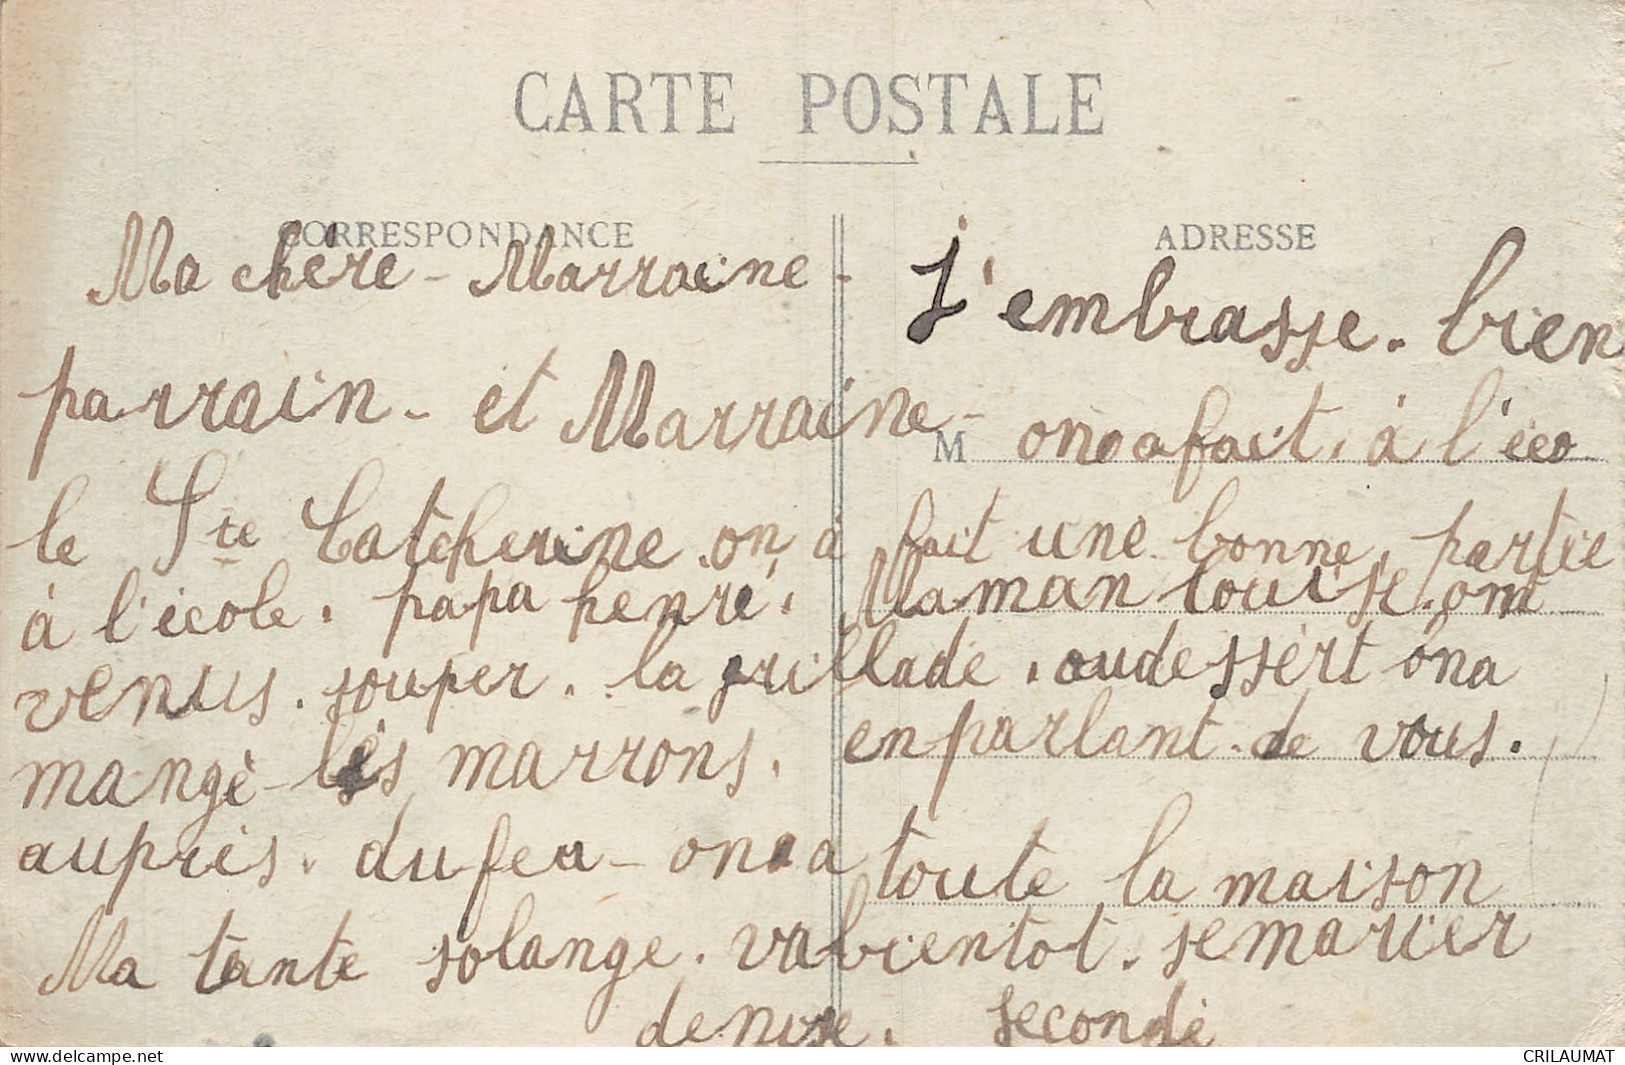 CARTE POSTALE
CORRESPONDANCE
ADRESSE
Ma chère - Marraine - J'embrasse. bien
parrain - et Marraine -
M
on a fait, à l'éco
le Ste Catherine. on a fait une bonne, partie
à l'école. papa henré. Maman Louise. om
venus. souper. la grillade. au dessèrt ona
mangè - les marrons. en parlant - de vous.
auprès. du feu - on a toute la maison
Ma tante solange. va bientot. se marier
denise. secondé
CRILAUMAT